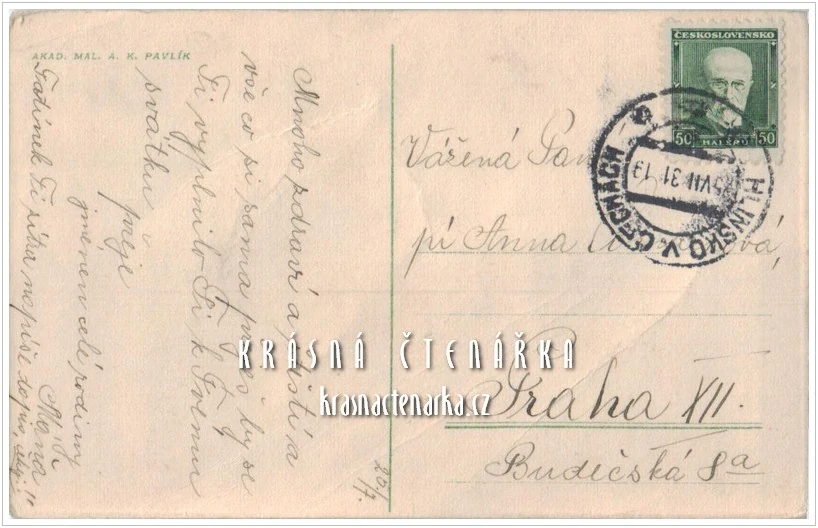 AKAD. MAL. A. K. PAVLÍK
Mnoho zdraví a štěstí a
vše co si sama přeješ by se
Ti vyplnilo Ti k Tvému
svátku
přeje
jmenem celé rodiny
Máňa
Tatínek Ti říka nepíše dopis,
20/7
ČESKOSLOVENSKO
50 HALÉŘŮ 50
HLINSKO V ČECHÁCH
VII 31
Vážená Paní
pí Anna
Praha XII.
Budečská 8a
KRÁSNÁ ČTENÁŘKA
krasnactenarka.cz